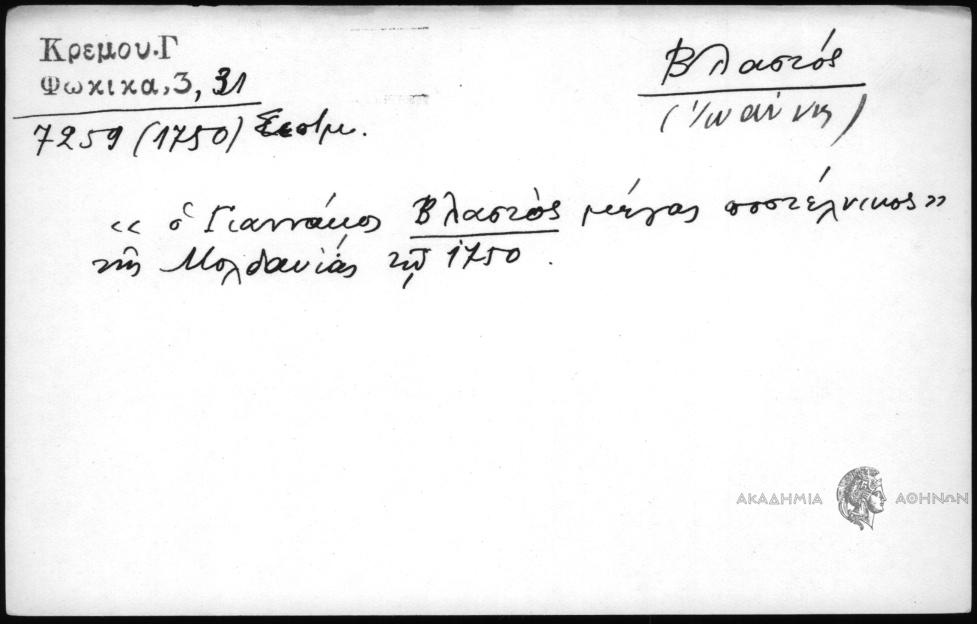 Κρεμου.Γ
Φωκικα,3,31
7259 (1750)
Βλαστός
(Ἰωάννης)
«ὁ Γιαννάκος Βλαστὸς μέγας ποστέλνικος»
τῆς Μολδαυίας τῷ 1750.
ΑΚΑΔΗΜΙΑ ΑΘΗΝΩΝ